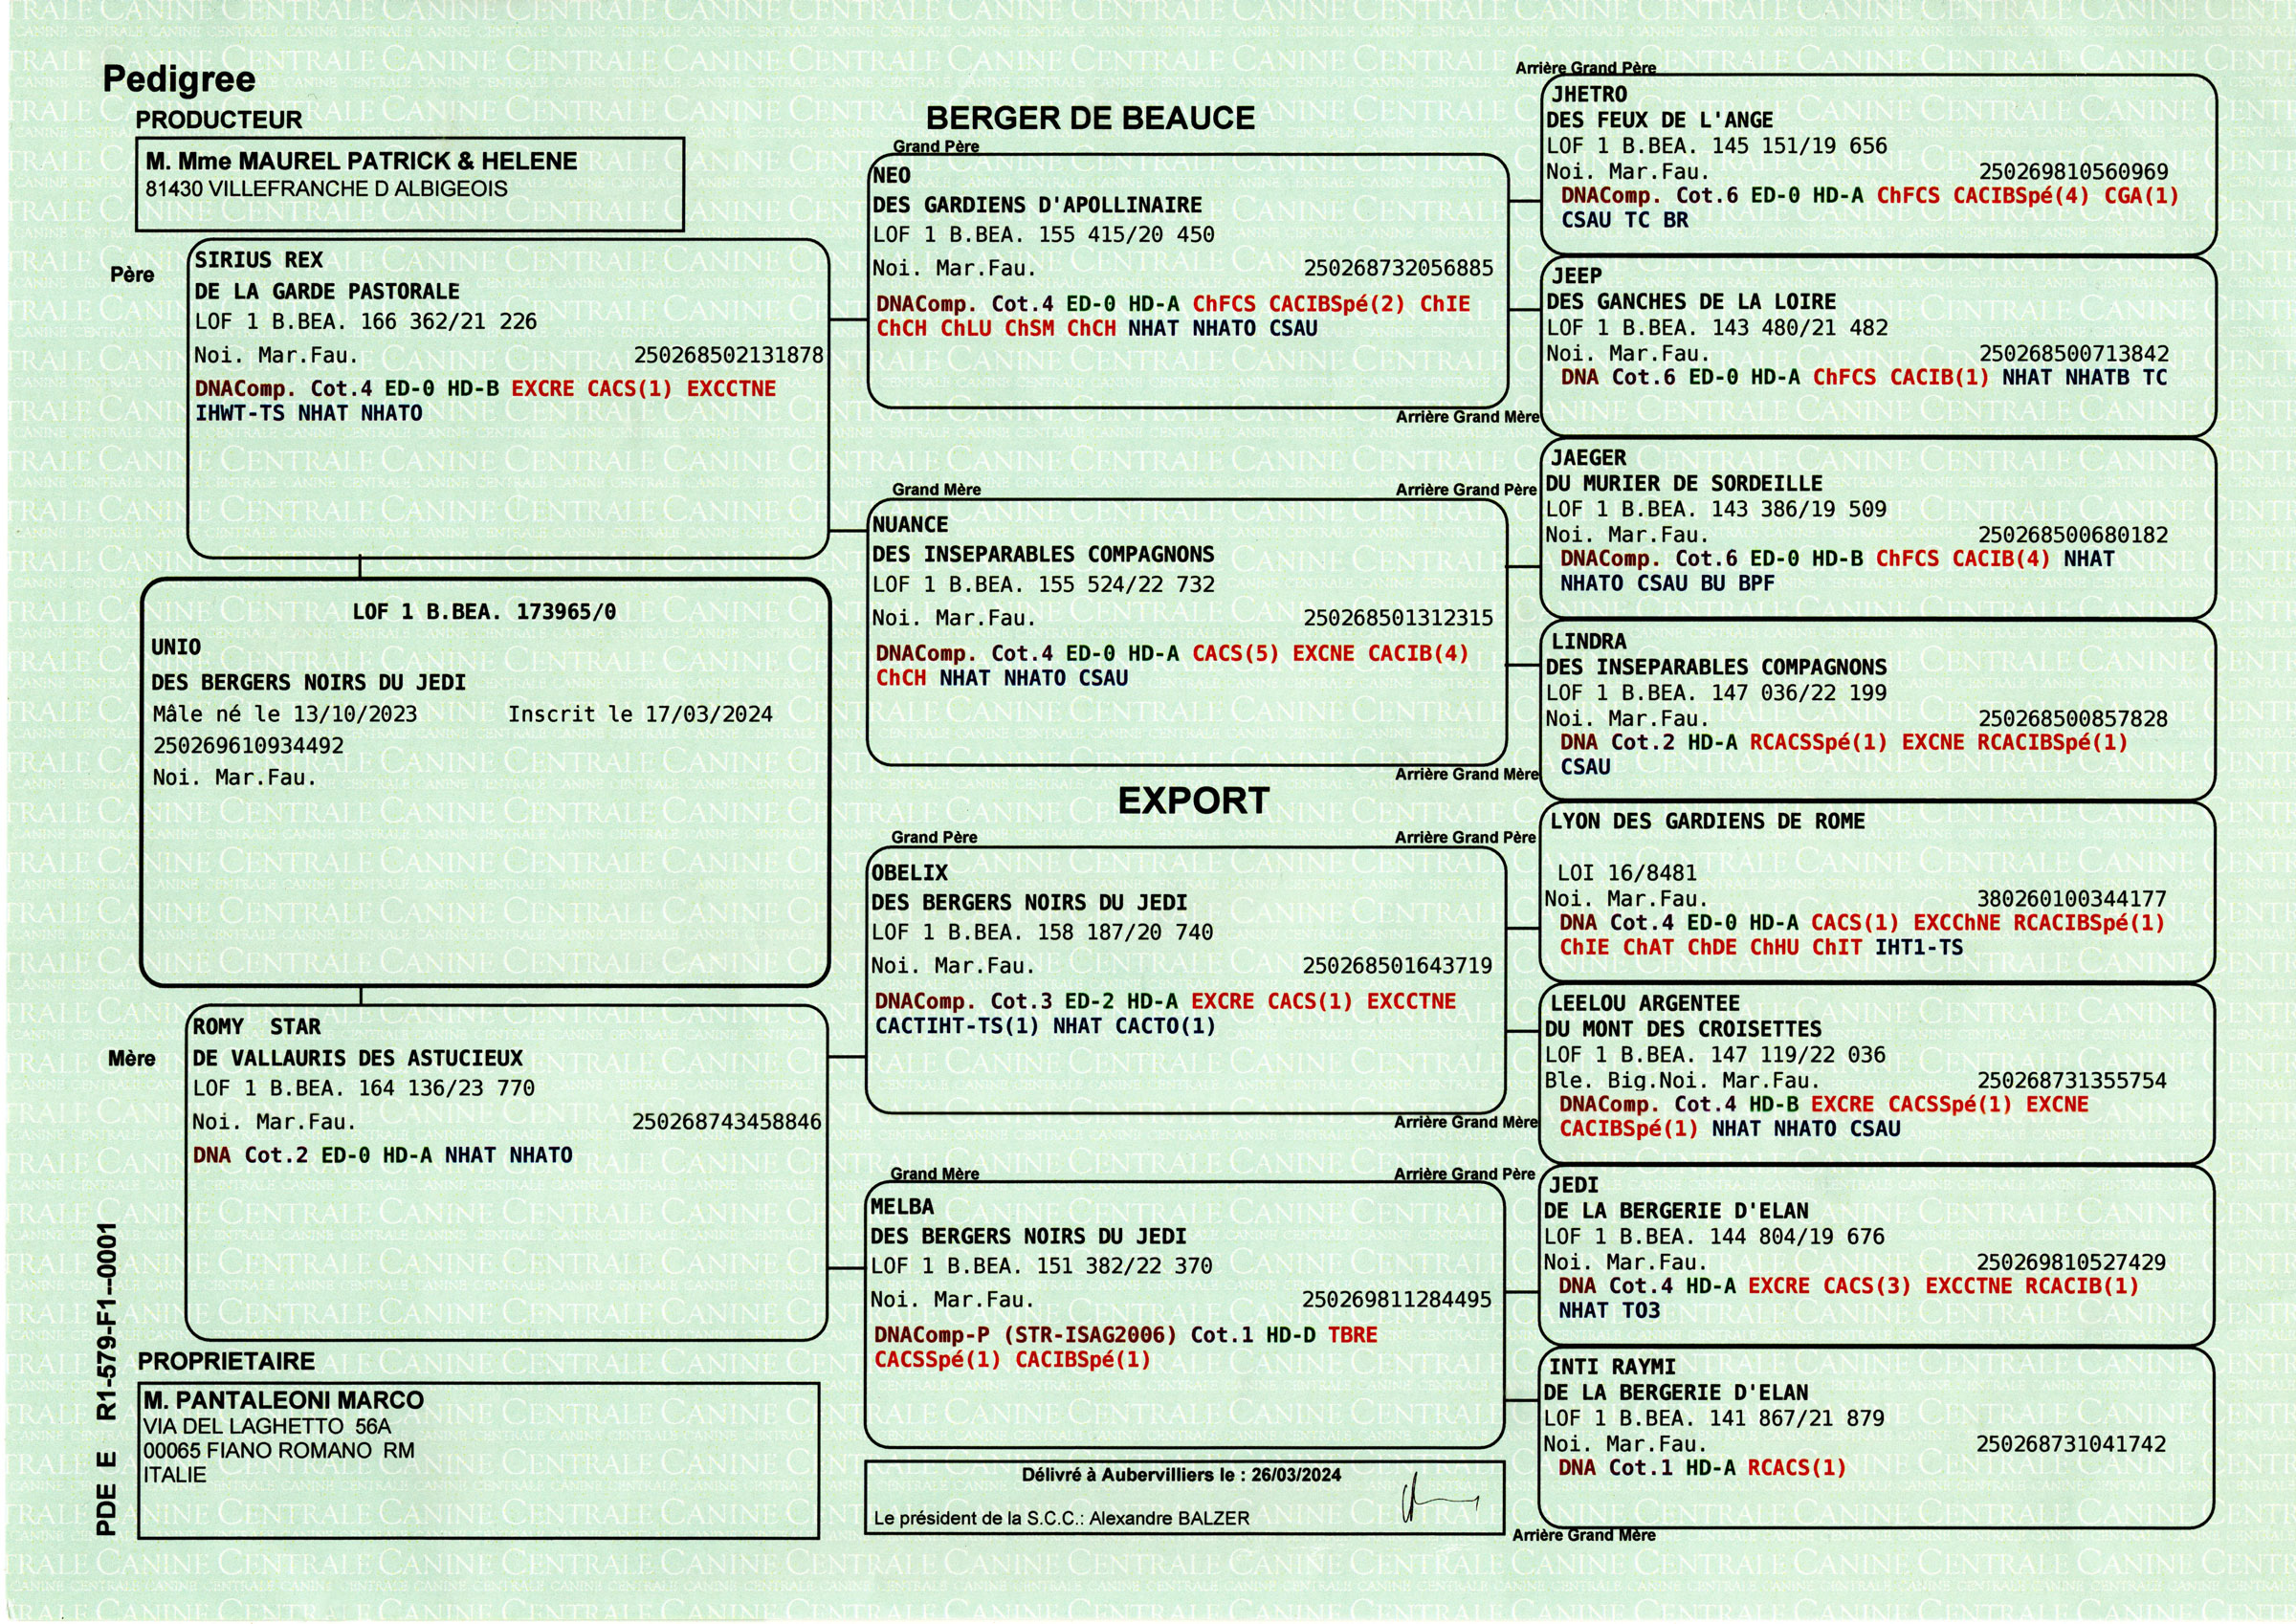 Pedigree
PRODUCTEUR
M. Mme MAUREL PATRICK & HELENE
81430 VILLEFRANCHE D ALBIGEOIS
BERGER DE BEAUCE
Père
SIRIUS REX
DE LA GARDE PASTORALE
LOF 1 B.BEA. 166 362/21 226
Noi. Mar.Fau. 250268502131878
DNAComp. Cot.4 ED-0 HD-B EXCRE CACS(1) EXCCTNE
IHWT-TS NHAT NHATO
LOF 1 B.BEA. 173965/0
UNIO
DES BERGERS NOIRS DU JEDI
Mâle né le 13/10/2023 Inscrit le 17/03/2024
250269610934492
Noi. Mar.Fau.
Mère
ROMY STAR
DE VALLAURIS DES ASTUCIEUX
LOF 1 B.BEA. 164 136/23 770
Noi. Mar.Fau. 250268743458846
DNA Cot.2 ED-0 HD-A NHAT NHATO
PDE E R1-579-F1--0001
PROPRIETAIRE
M. PANTALEONI MARCO
VIA DEL LAGHETTO 56A
00065 FIANO ROMANO RM
ITALIE
Grand Père
NEO
DES GARDIENS D'APOLLINAIRE
LOF 1 B.BEA. 155 415/20 450
Noi. Mar.Fau. 250268732056885
DNAComp. Cot.4 ED-0 HD-A ChFCS CACIBSpé(2) ChIE
ChCH ChLU ChSM ChCH NHAT NHATO CSAU
Arrière Grand Mère
Grand Mère
Arrière Grand Père
NUANCE
DES INSEPARABLES COMPAGNONS
LOF 1 B.BEA. 155 524/22 732
Noi. Mar.Fau. 250268501312315
DNAComp. Cot.4 ED-0 HD-A CACS(5) EXCNE CACIB(4)
ChCH NHAT NHATO CSAU
Arrière Grand Mère
EXPORT
Grand Père
Arrière Grand Père
OBELIX
DES BERGERS NOIRS DU JEDI
LOF 1 B.BEA. 158 187/20 740
Noi. Mar.Fau. 250268501643719
DNAComp. Cot.3 ED-2 HD-A EXCRE CACS(1) EXCCTNE
CACTIHT-TS(1) NHAT CACTO(1)
Arrière Grand Mère
Grand Mère
Arrière Grand Père
MELBA
DES BERGERS NOIRS DU JEDI
LOF 1 B.BEA. 151 382/22 370
Noi. Mar.Fau. 250269811284495
DNAComp-P (STR-ISAG2006) Cot.1 HD-D TBRE
CACSSpé(1) CACIBSpé(1)
Délivré à Aubervilliers le : 26/03/2024
Le président de la S.C.C.: Alexandre BALZER
Arrière Grand Père
JHETRO
DES FEUX DE L'ANGE
LOF 1 B.BEA. 145 151/19 656
Noi. Mar.Fau. 250269810560969
DNAComp. Cot.6 ED-0 HD-A ChFCS CACIBSpé(4) CGA(1)
CSAU TC BR
JEEP
DES GANCHES DE LA LOIRE
LOF 1 B.BEA. 143 480/21 482
Noi. Mar.Fau. 250268500713842
DNA Cot.6 ED-0 HD-A ChFCS CACIB(1) NHAT NHATB TC
JAEGER
DU MURIER DE SORDEILLE
LOF 1 B.BEA. 143 386/19 509
Noi. Mar.Fau. 250268500680182
DNAComp. Cot.6 ED-0 HD-B ChFCS CACIB(4) NHAT
NHATO CSAU BU BPF
LINDRA
DES INSEPARABLES COMPAGNONS
LOF 1 B.BEA. 147 036/22 199
Noi. Mar.Fau. 250268500857828
DNA Cot.2 HD-A RCACSSpé(1) EXCNE RCACIBSpé(1)
CSAU
LYON DES GARDIENS DE ROME
LOI 16/8481
Noi. Mar.Fau. 380260100344177
DNA Cot.4 ED-0 HD-A CACS(1) EXCChNE RCACIBSpé(1)
ChIE ChAT ChDE ChHU ChIT IHT1-TS
LEELOU ARGENTEE
DU MONT DES CROISETTES
LOF 1 B.BEA. 147 119/22 036
Ble. Big.Noi. Mar.Fau. 250268731355754
DNAComp. Cot.4 HD-B EXCRE CACSSpé(1) EXCNE
CACIBSpé(1) NHAT NHATO CSAU
JEDI
DE LA BERGERIE D'ELAN
LOF 1 B.BEA. 144 804/19 676
Noi. Mar.Fau. 250269810527429
DNA Cot.4 HD-A EXCRE CACS(3) EXCCTNE RCACIB(1)
NHAT TO3
INTI RAYMI
DE LA BERGERIE D'ELAN
LOF 1 B.BEA. 141 867/21 879
Noi. Mar.Fau. 250268731041742
DNA Cot.1 HD-A RCACS(1)
Arrière Grand Mère